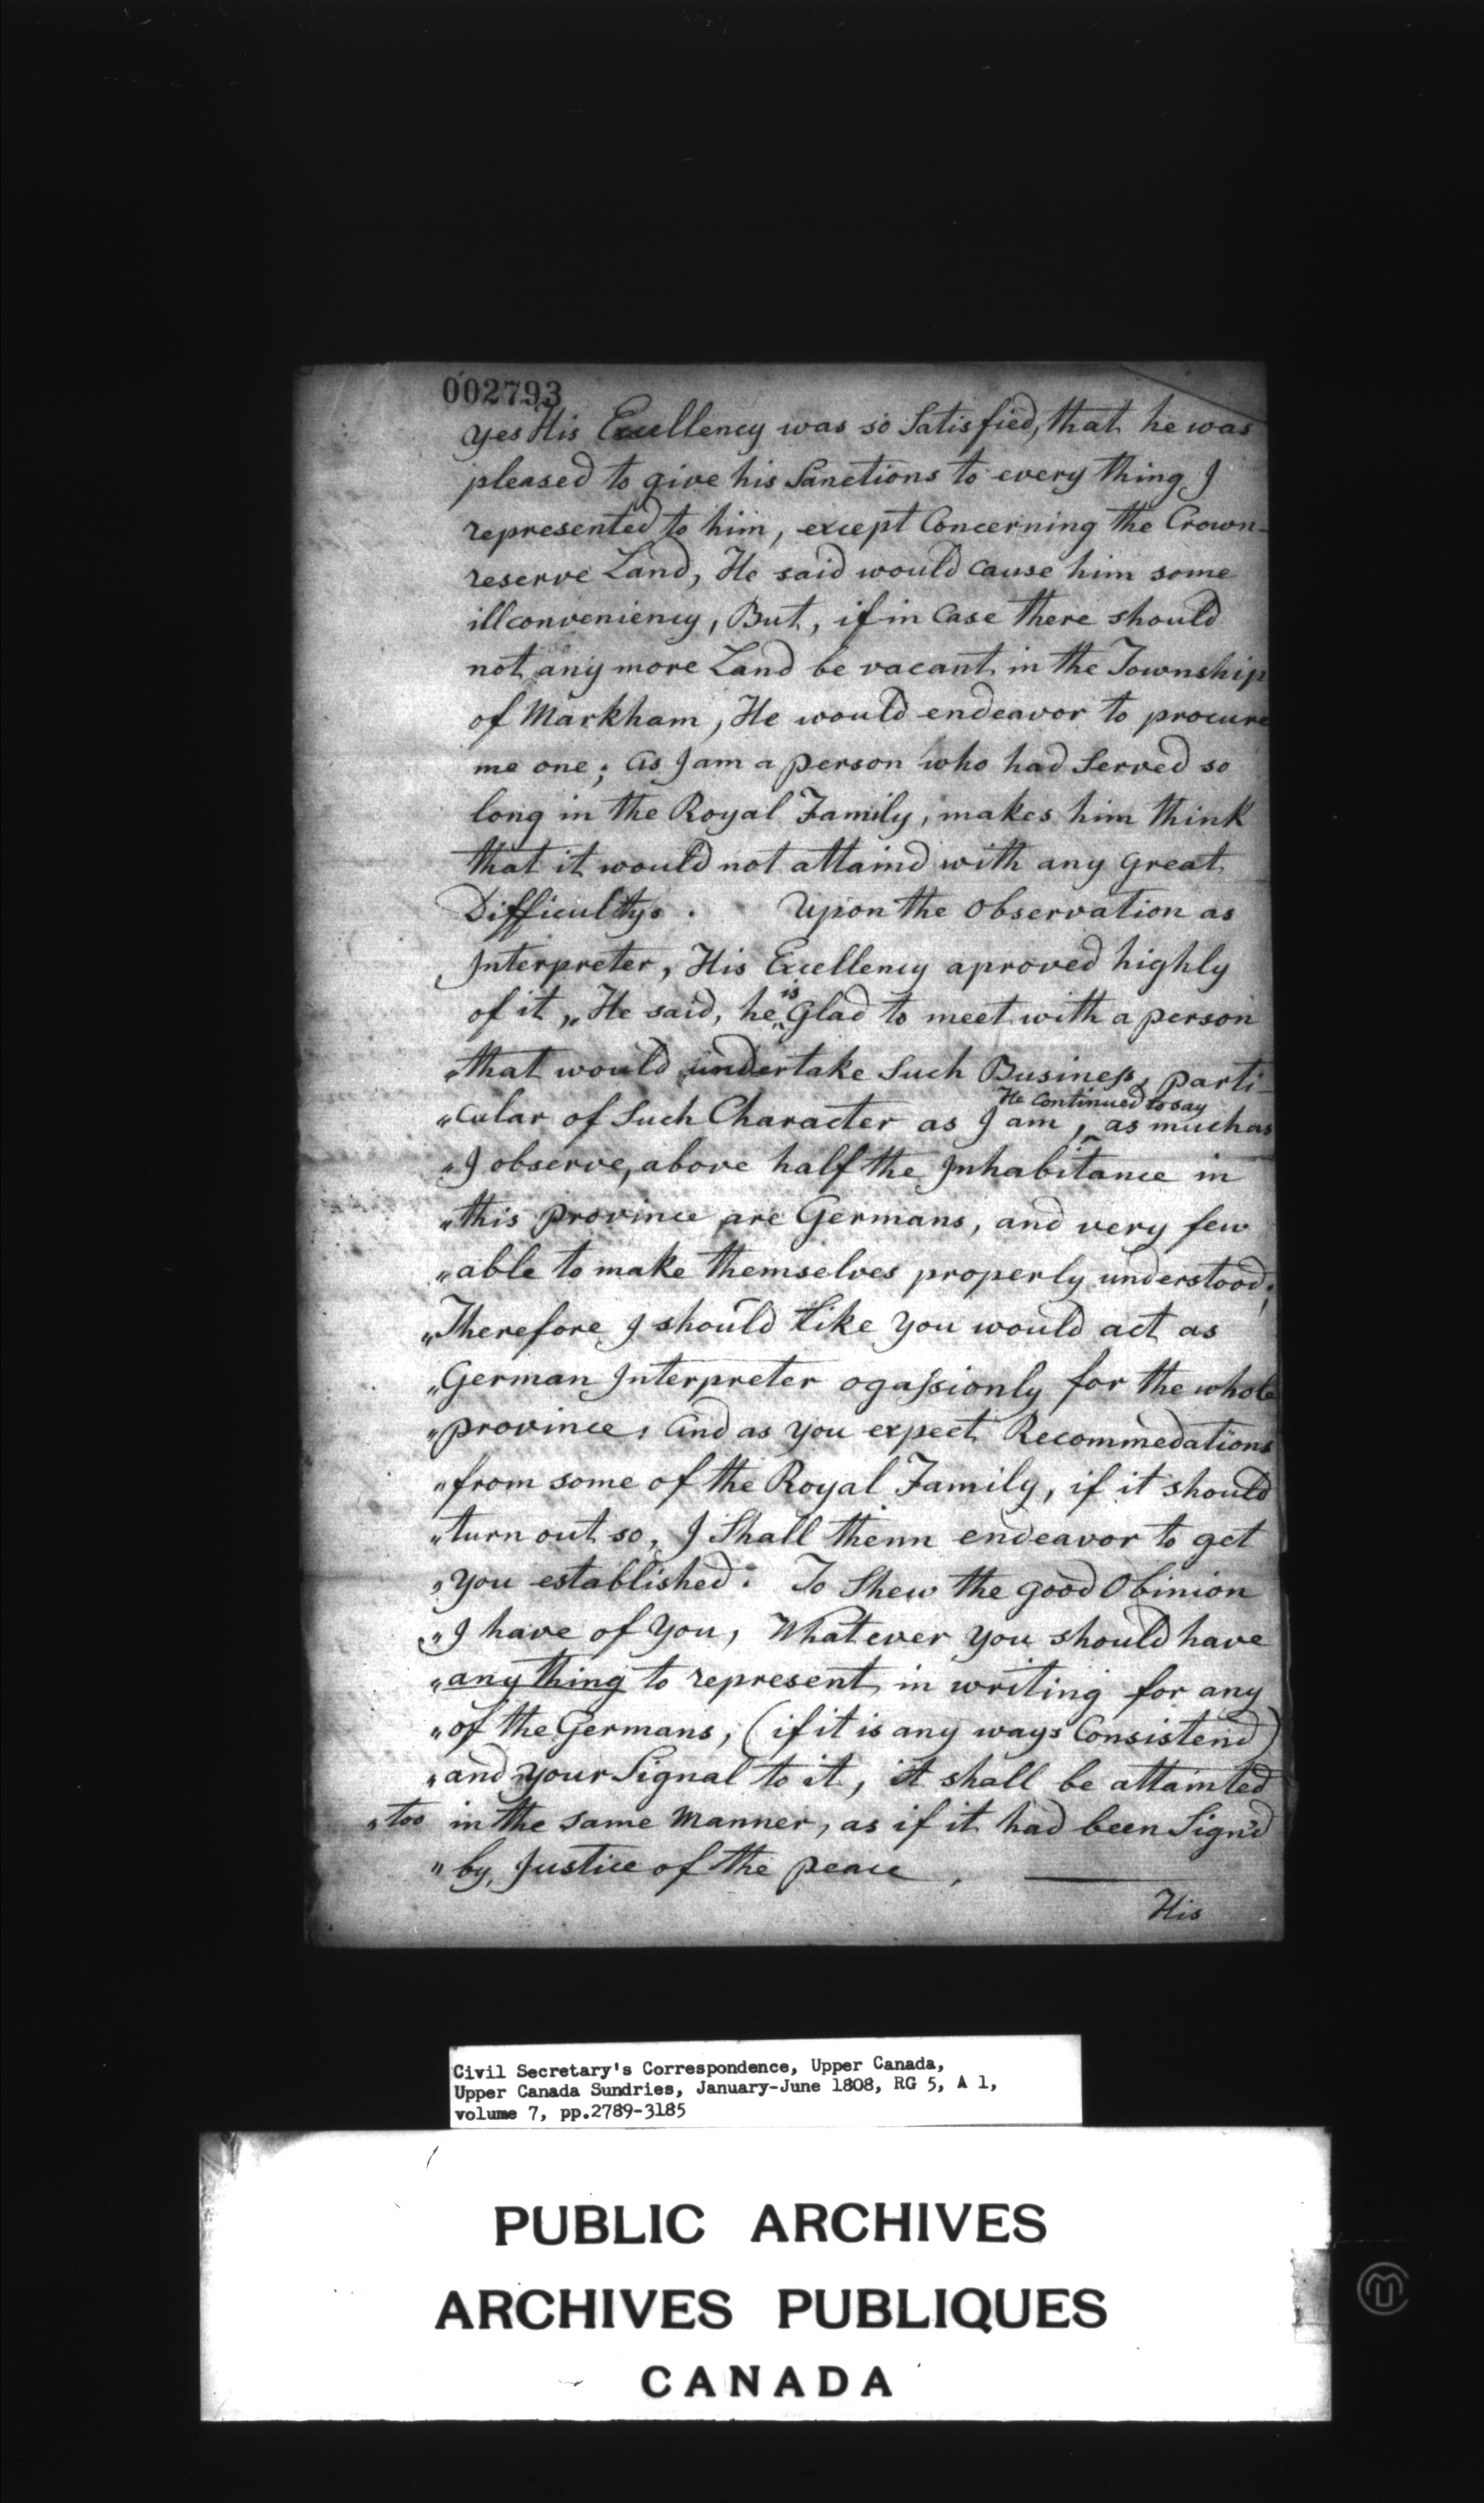 002793
yes His Excellency was so Satisfied, that he was
pleased to give his Sanctions to every thing I
represented to him, except Concerning the Crown-
reserve Land, He said would cause him some
illconveniency, But, if in Case there should
not any more Land be vacant in the Township
of Markham, He would endeavor to procure
me one; as I am a person who had Served so
long in the Royal Family, makes him think
that it would not attaind with any great
Difficultys. Upon the Observation as
Interpreter, His Excellency aproved highly
of it „He said, he is Glad to meet with a person
„that would undertake Such Business, parti-
„cular of Such Character as I am, He Continued to say as much as
„I observe, above half the Inhabitance in
„this province are Germans, and very few
„able to make themselves properly understood;
„Therefore I should like you would act as
„German Interpreter ogassionly for the whole
„province, and as you expect Recommedations
„from some of the Royal Family, if it should
„turn out so, I Shall thenn endeavor to get
„you established. To Shew the good Obinion
„I have of you, What ever you should have
„any thing to represent in writing for any
„of the Germans, (if it is any ways Consistend)
„and your Signal to it, it shall be attainted
„too in the same Manner, as if it had been Sign'd
„by Justice of the peace,
His
Civil Secretary's Correspondence, Upper Canada,
Upper Canada Sundries, January-June 1808, RG 5, A 1,
volume 7, pp.2789-3185
PUBLIC ARCHIVES
ARCHIVES PUBLIQUES
CANADA